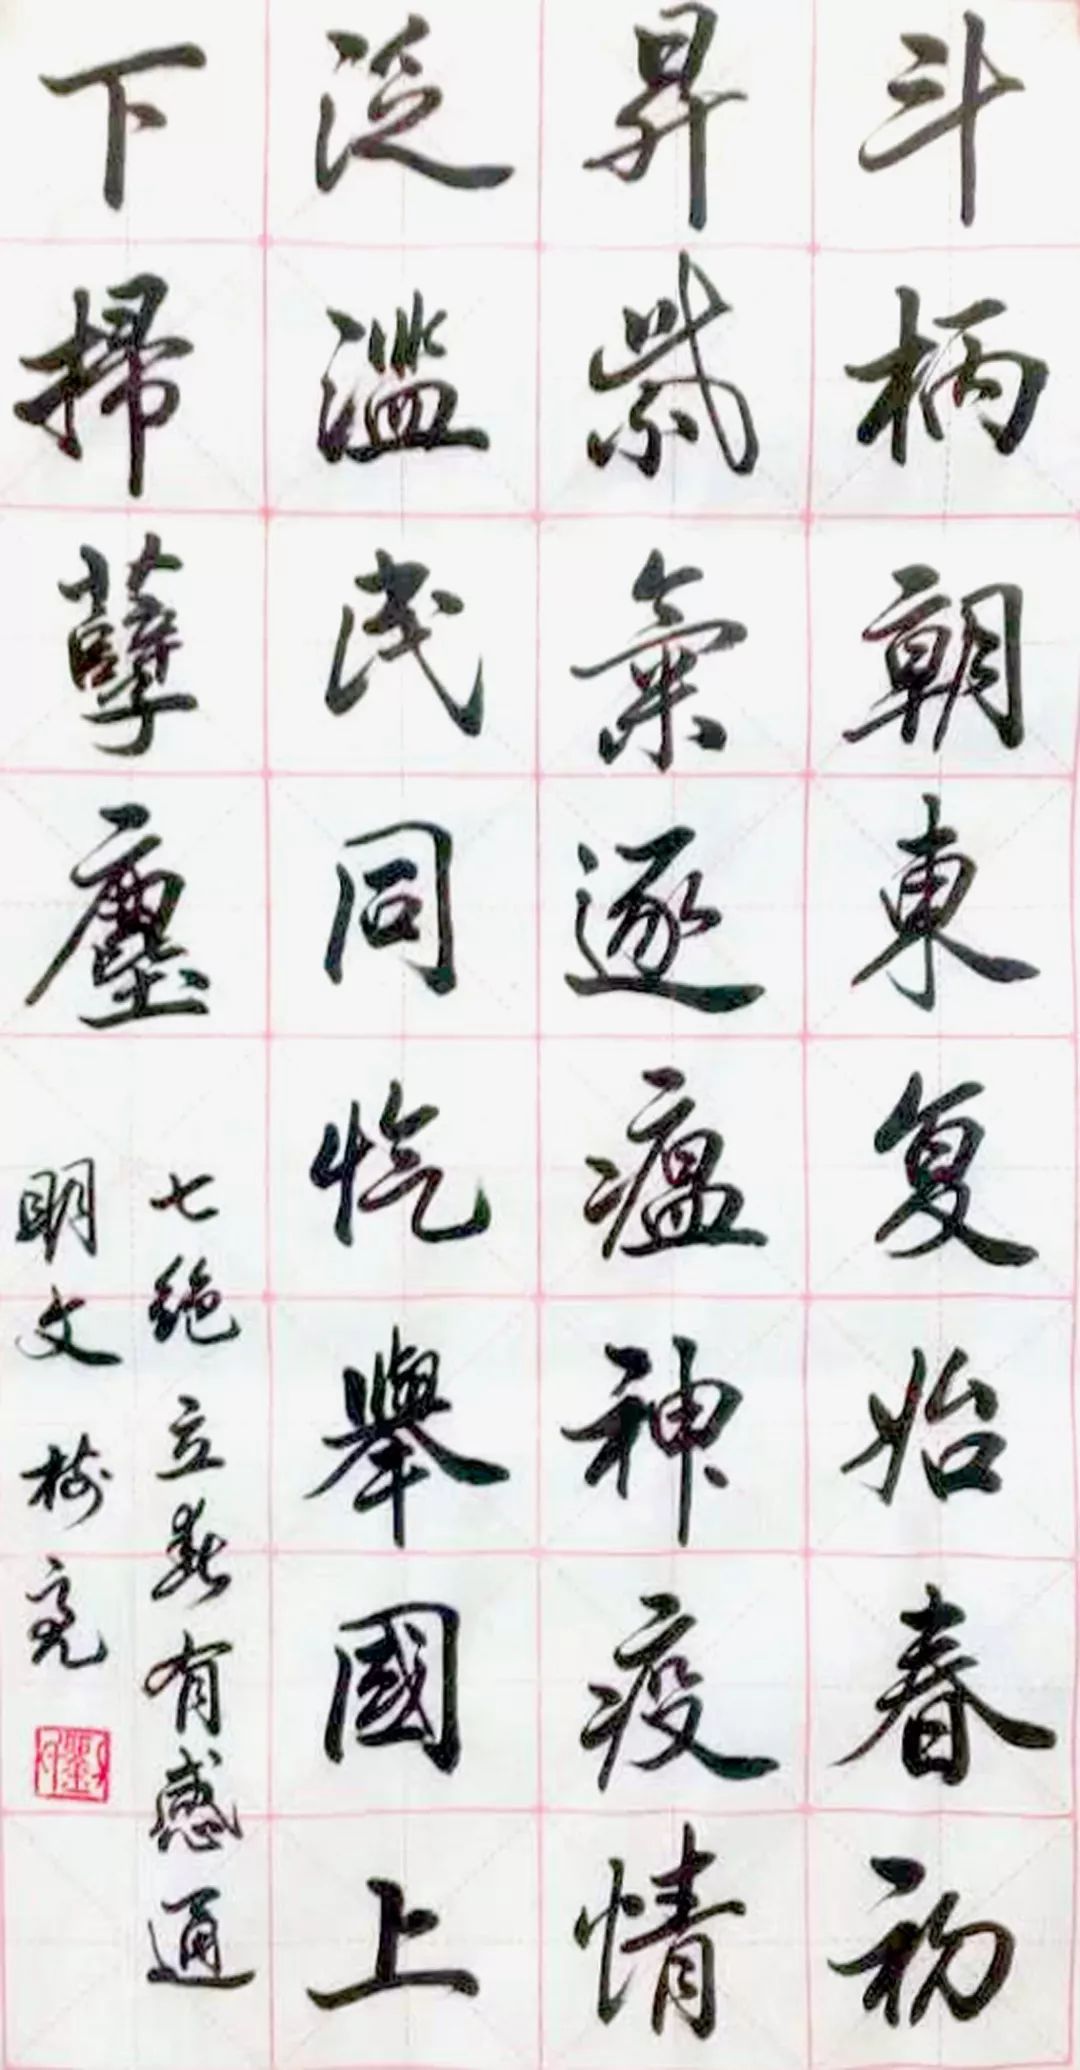 斗柄朝東复始春初
昇紫氣逐瘟神疫情
泛滥民同忾舉國上
下掃孽塵
七绝立春有感通
明文树亮